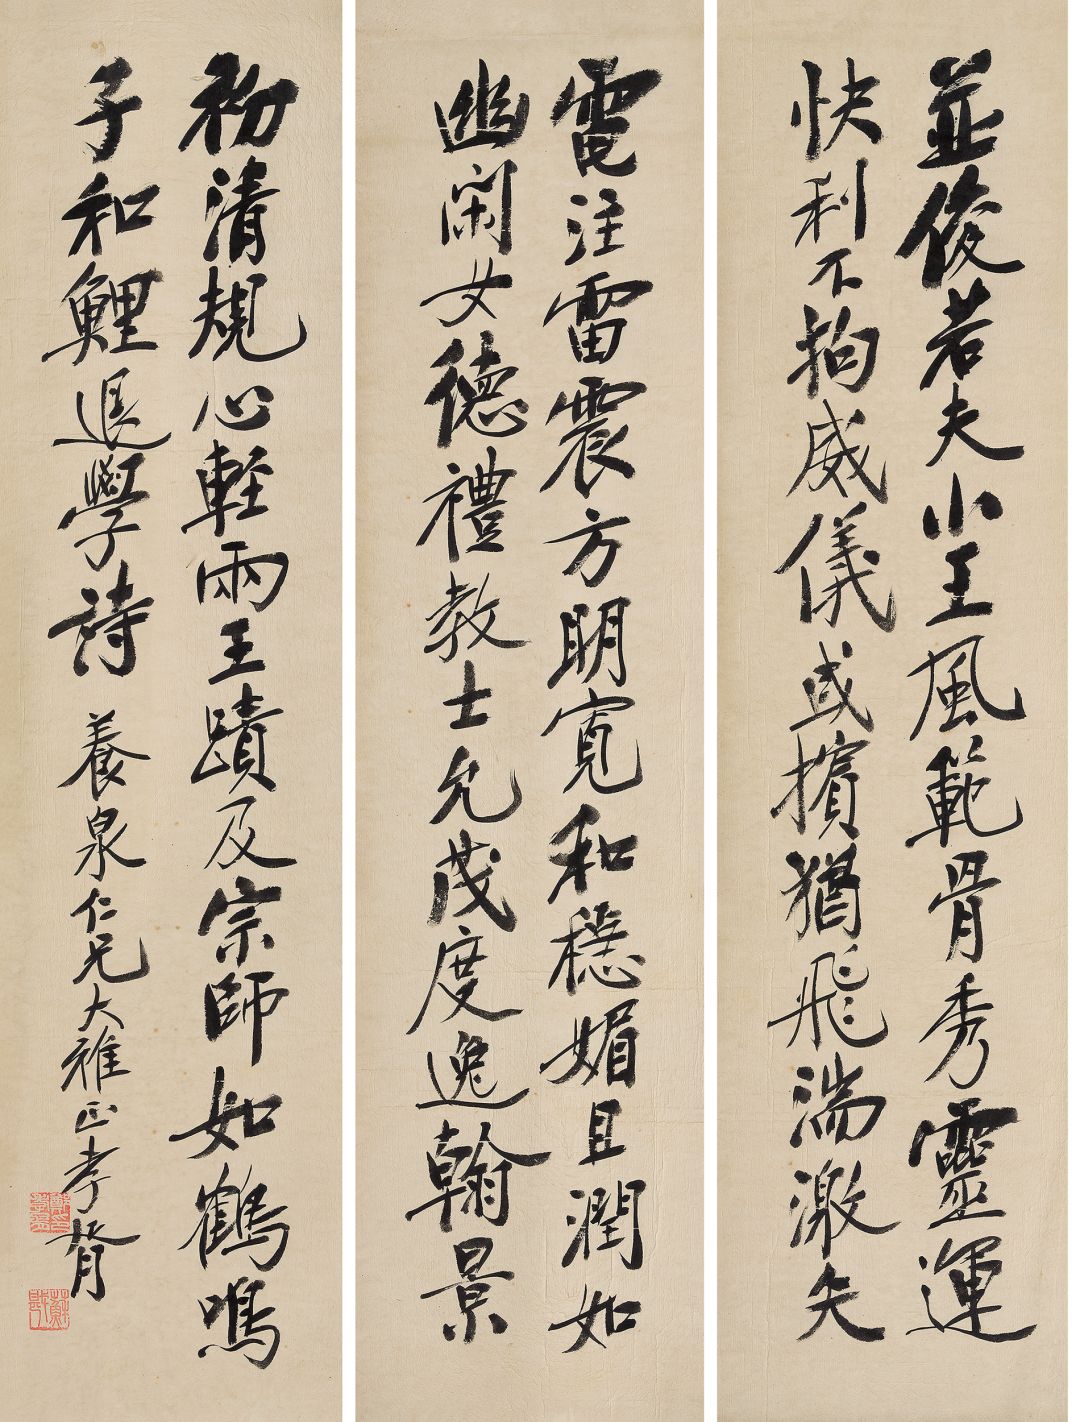 並俊若夫小王風範骨秀靈運
快利不拘威儀或擯猶飛湍激矢
電注雷震方明寬和穩媚且潤如
幽閑女德禮教士允茂度逸翰景
初清規心輕兩王蹟及宗師如鶴鳴
子和鯉退學詩
養泉仁兄大雅正孝胥